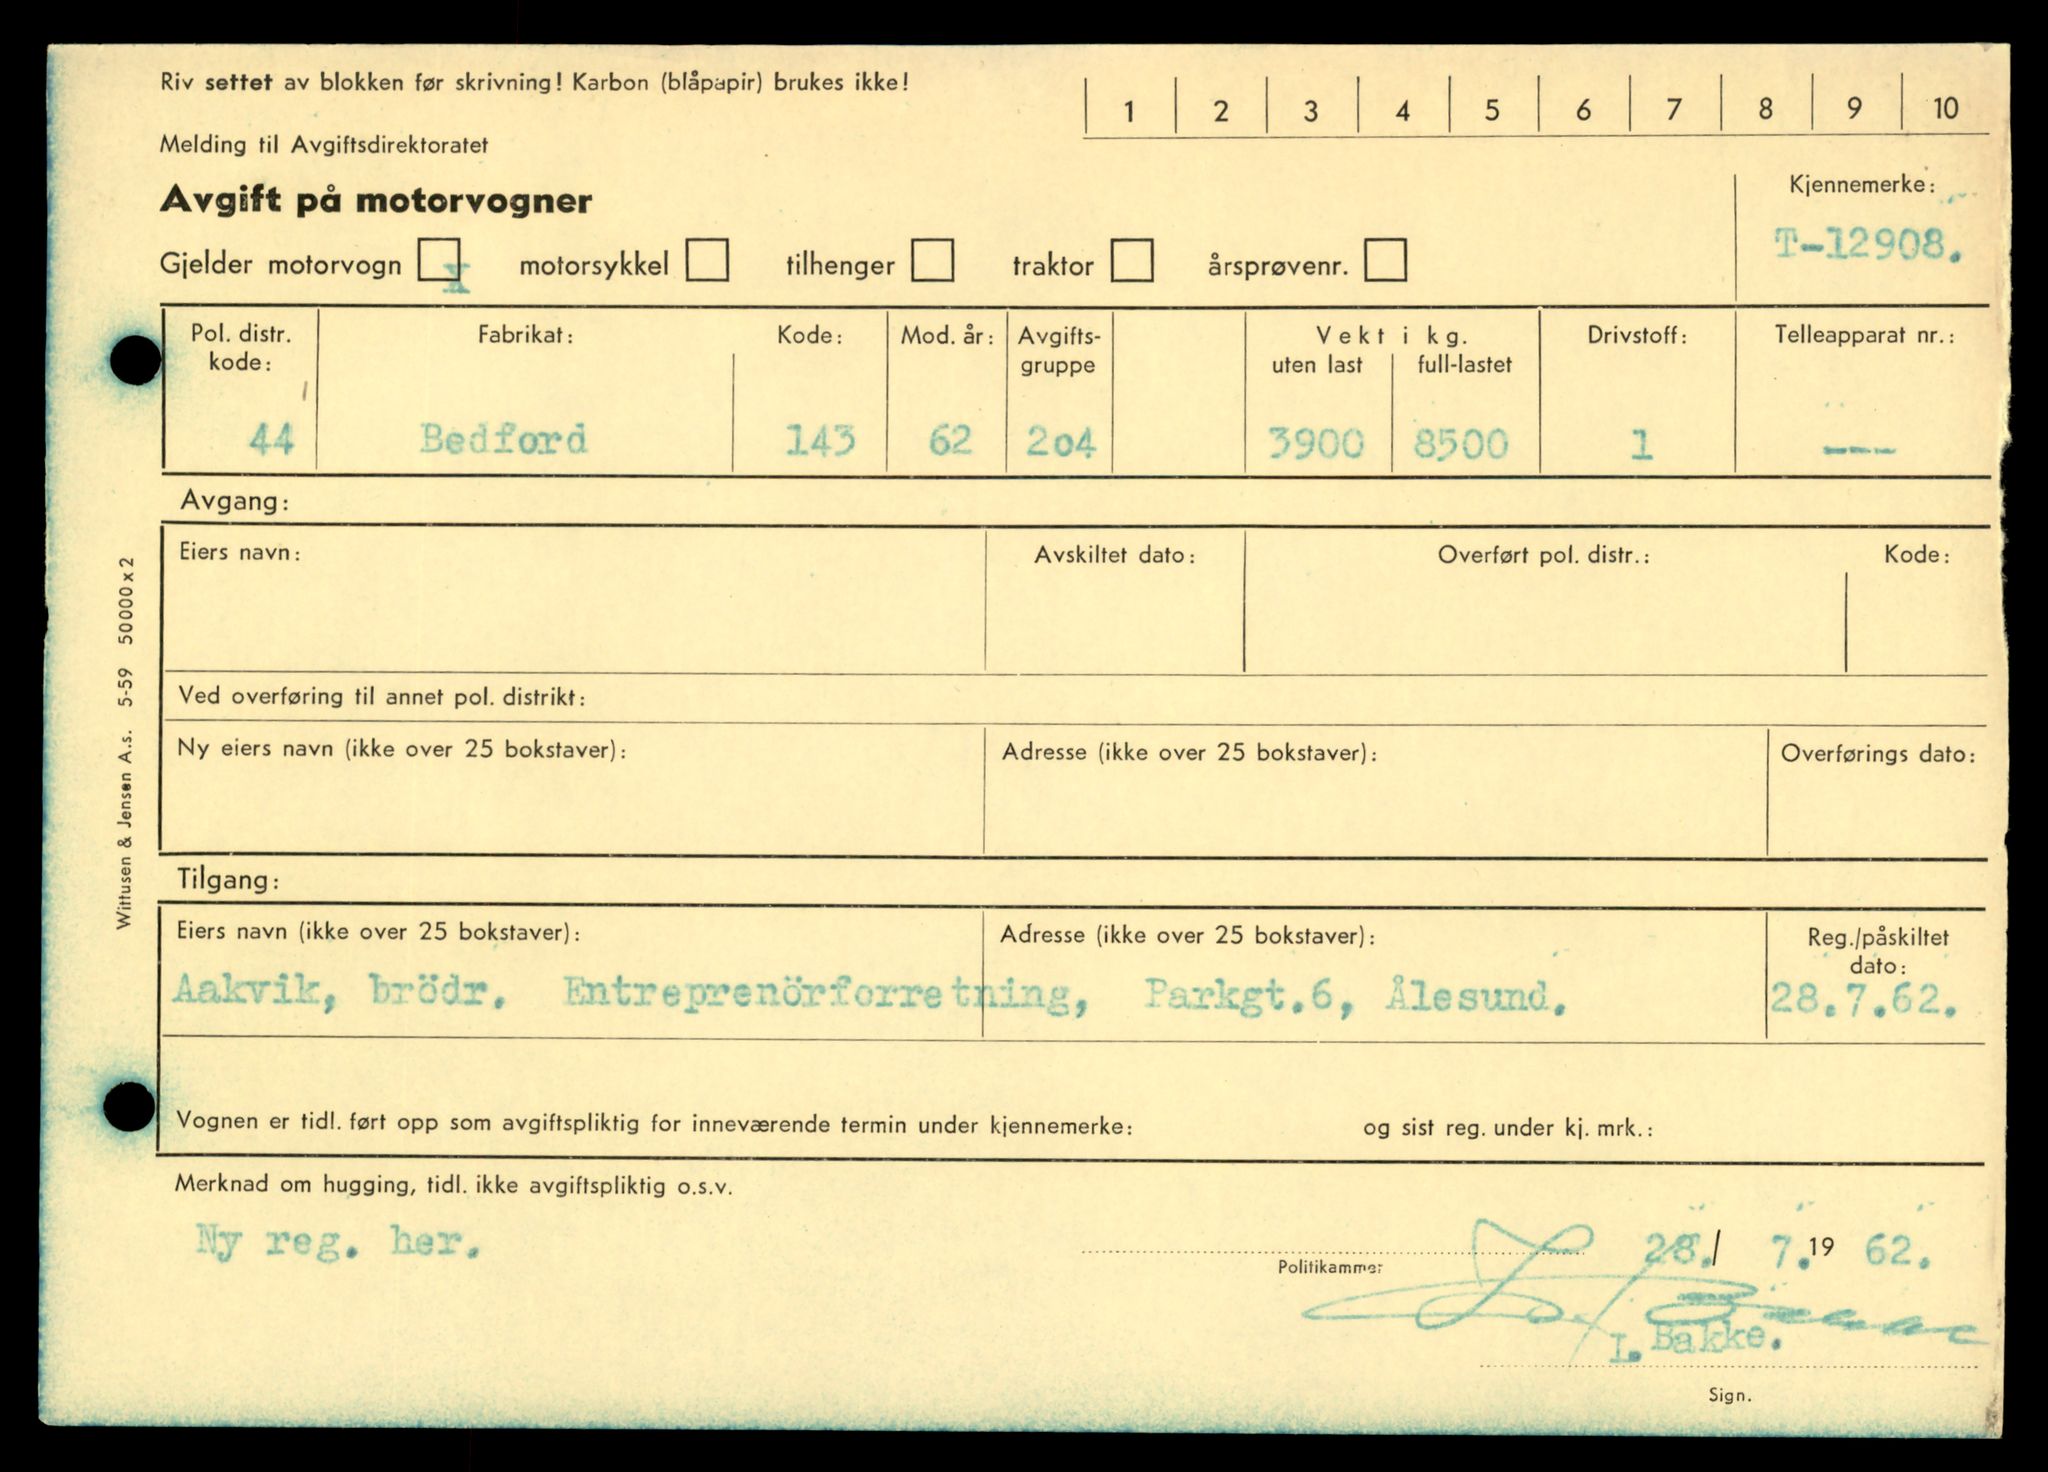 Riv settet av blokken før skrivning! Karbon (blåpapir) brukes ikke!
1 2 3 4 5 6 7 8 9 10
Melding til Avgiftsdirektoratet
Avgift på motorvogner
Kjennemerke:
T-12908.
Gjelder motorvogn X motorsykkel tilhenger traktor årsprøvenr.
Pol. distr. kode: Fabrikat: Kode: Mod. år: Avgifts-gruppe Vekt i kg. uten last full-lastet Drivstoff: Telleapparat nr.:
44 Bedford 143 62 2o4 3900 8500 1 ---
Avgang:
Eiers navn: Avskiltet dato: Overført pol. distr.: Kode:
Ved overføring til annet pol. distrikt:
Ny eiers navn (ikke over 25 bokstaver): Adresse (ikke over 25 bokstaver): Overførings dato:
Tilgang:
Eiers navn (ikke over 25 bokstaver): Adresse (ikke over 25 bokstaver): Reg./påskiltet dato:
Aakvik, brödr. Entreprenörforretning, Parkgt.6, Ålesund. 28.7.62.
Vognen er tidl. ført opp som avgiftspliktig for inneværende termin under kjennemerke: og sist reg. under kj. mrk.:
Merknad om hugging, tidl. ikke avgiftspliktig o.s.v.
Ny reg. her.
28./ 7.19 62.
Politikammer
I. Bakke.
Sign.
Wittusen & Jensen A.s. 5-59 50000x2